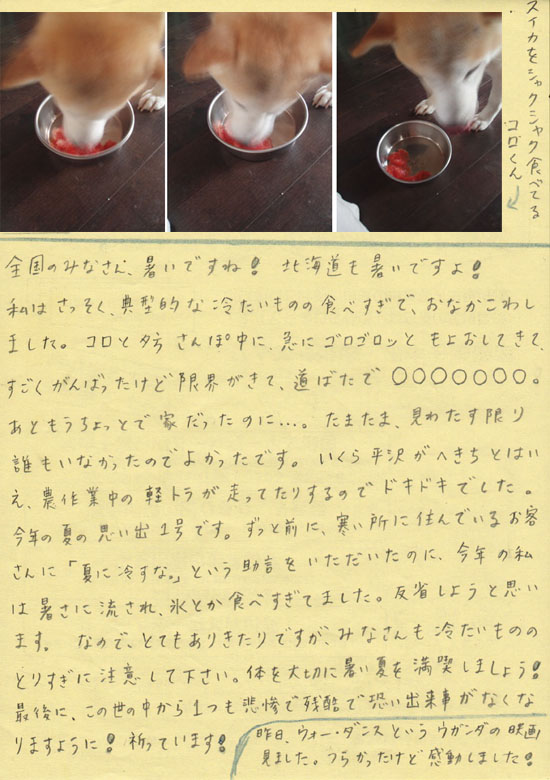 スイカをシャクシャク食べてる
コロくん
全国のみなさん、暑いですね! 北海道も暑いですよ!
私はさっそく、典型的な冷たいものの食べすぎで、おなかこわし
ました。コロと夕方さんぽ中に、急にゴロゴロッともよおしてきて、
すごくがんばったけど限界がきて、道ばたで〇〇〇〇〇〇〇。
あともうちょっとで家だったのに…。たまたま、見わたす限り
誰もいなかったのでよかったです。いくら平沢がへきちとはい
え、農作業中の軽トラが走ってたりするのでドキドキでした。
今年の夏の思い出1号です。ずっと前に、寒い所に住んでいるお客
さんに「夏に冷すな。」という助言をいただいたのに、今年の私
は暑さに流され、氷とか食べすぎてました。反省しようと思い
ます。 なので、とてもありきたりですが、みなさんも冷たいものの
とりすぎに注意して下さい。体を大切に暑い夏を満喫しましょう!
最後に、この世の中から1つも悲惨で残酷で恐い出来事がなくな
りますように! 祈っています!
昨日、ウォー・ダンスというウガンダの映画
見ました。つらかったけど感動しました!